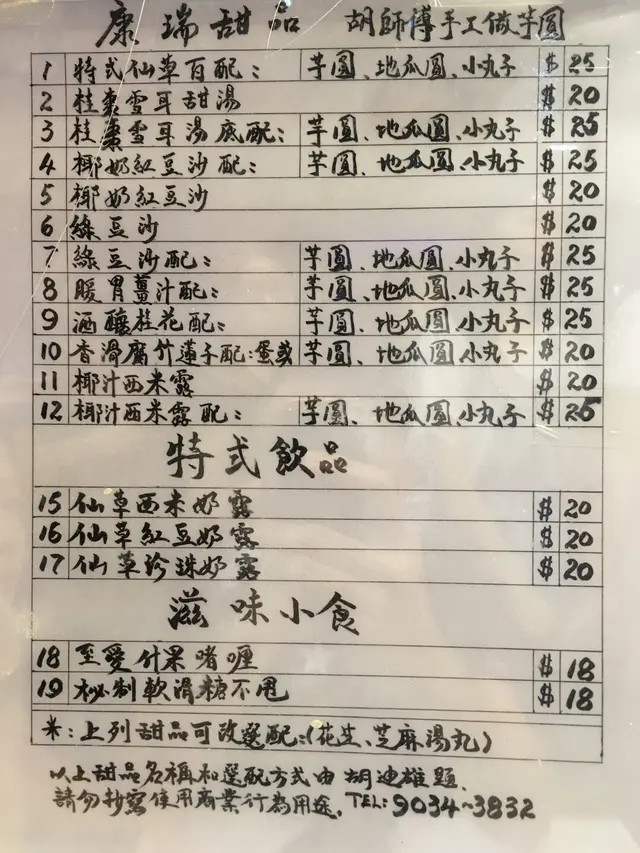 康瑞甜品 胡師傅手工做芋圓
1 特式仙草百配: 芋圓、地瓜圓、小丸子 $ 25
2 桂棗雪耳甜湯 $ 20
3 桂棗雪耳湯底配: 芋圓、地瓜圓、小丸子 $ 25
4 椰奶紅豆沙配: 芋圓、地瓜圓、小丸子 $ 25
5 椰奶紅豆沙 $ 20
6 綠豆沙 $ 20
7 綠豆沙配: 芋圓、地瓜圓、小丸子 $ 25
8 暖胃薑汁配: 芋圓、地瓜圓、小丸子 $ 25
9 酒釀桂花配: 芋圓、地瓜圓、小丸子 $ 25
10 香滑腐竹蓮子配:蛋或 芋圓、地瓜圓、小丸子 $ 20
11 椰汁西米露 $ 20
12 椰汁西米露配: 芋圓、地瓜圓、小丸子 $ 25
特式飲品
15 仙草西米奶露 $ 20
16 仙草紅豆奶露 $ 20
17 仙草珍珠奶露 $ 20
滋味小食
18 至愛什果啫喱 $ 18
19 秘制軟滑糖不甩 $ 18
米:上列甜品可改選配:(花生、芝麻湯丸)
以上甜品名稱和選配方式由胡迪雄題.
請勿抄寫使用商業行為用途. TEL: 9034-3832